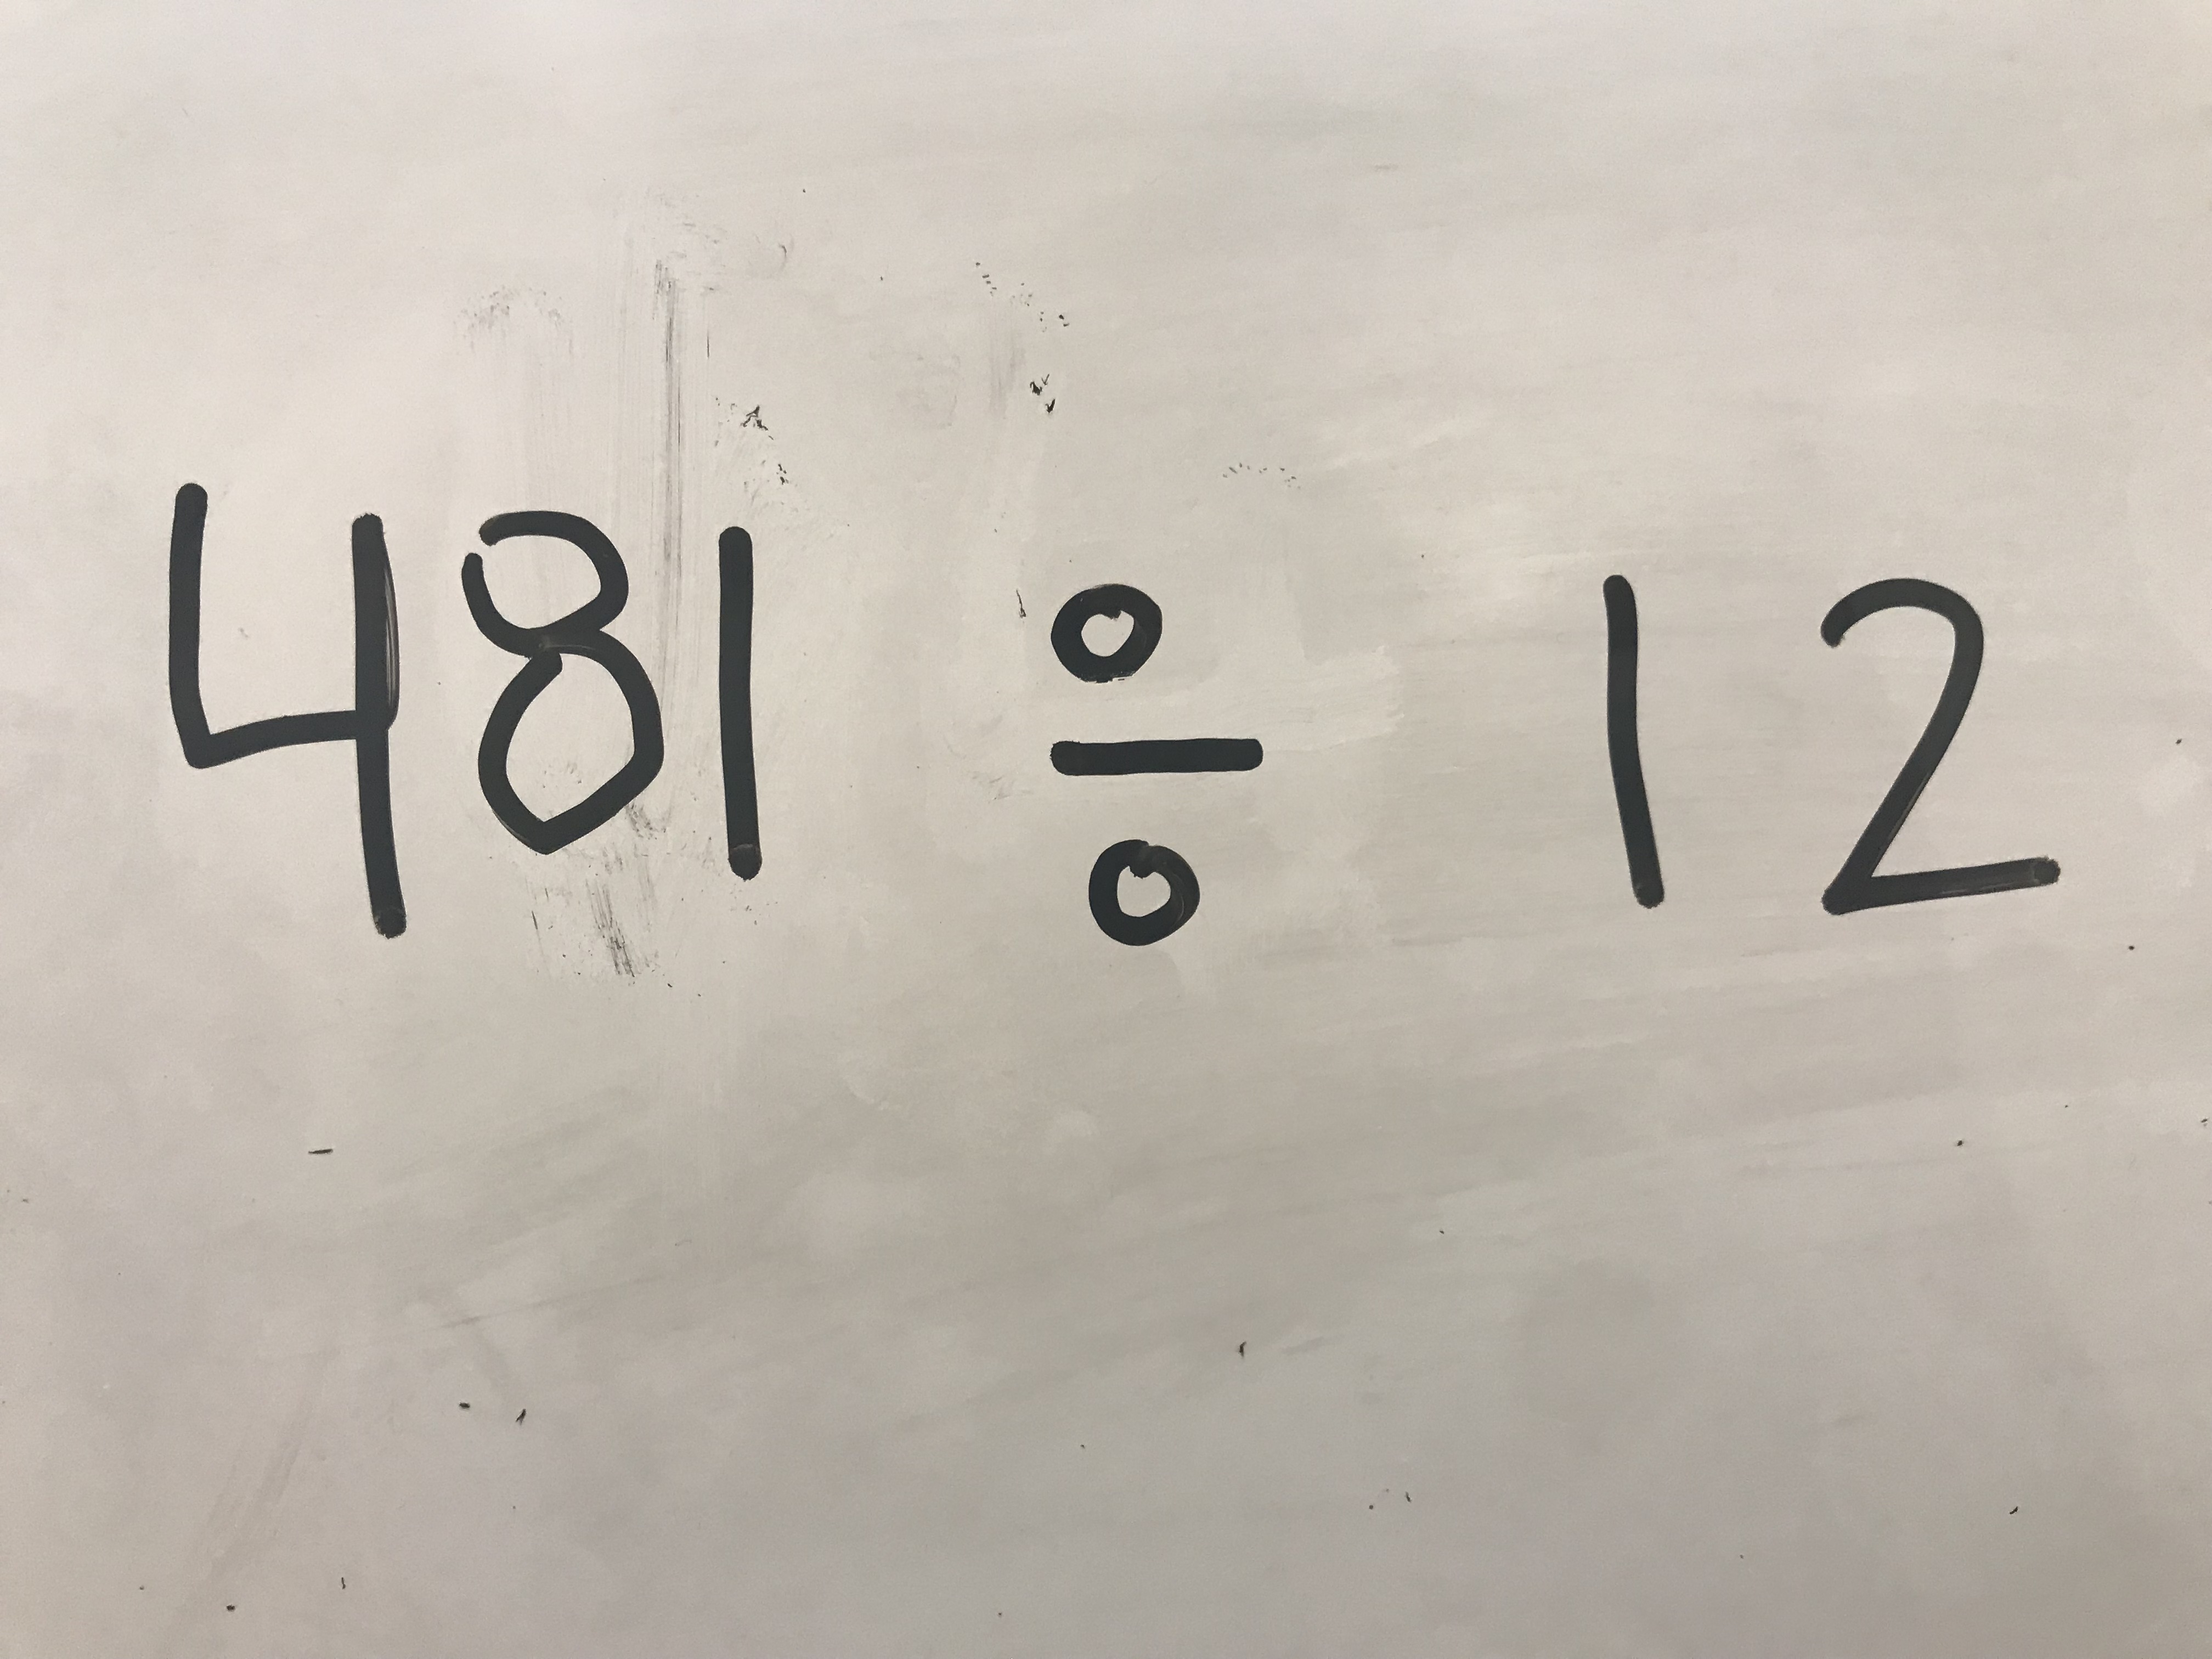 481 ÷ 12